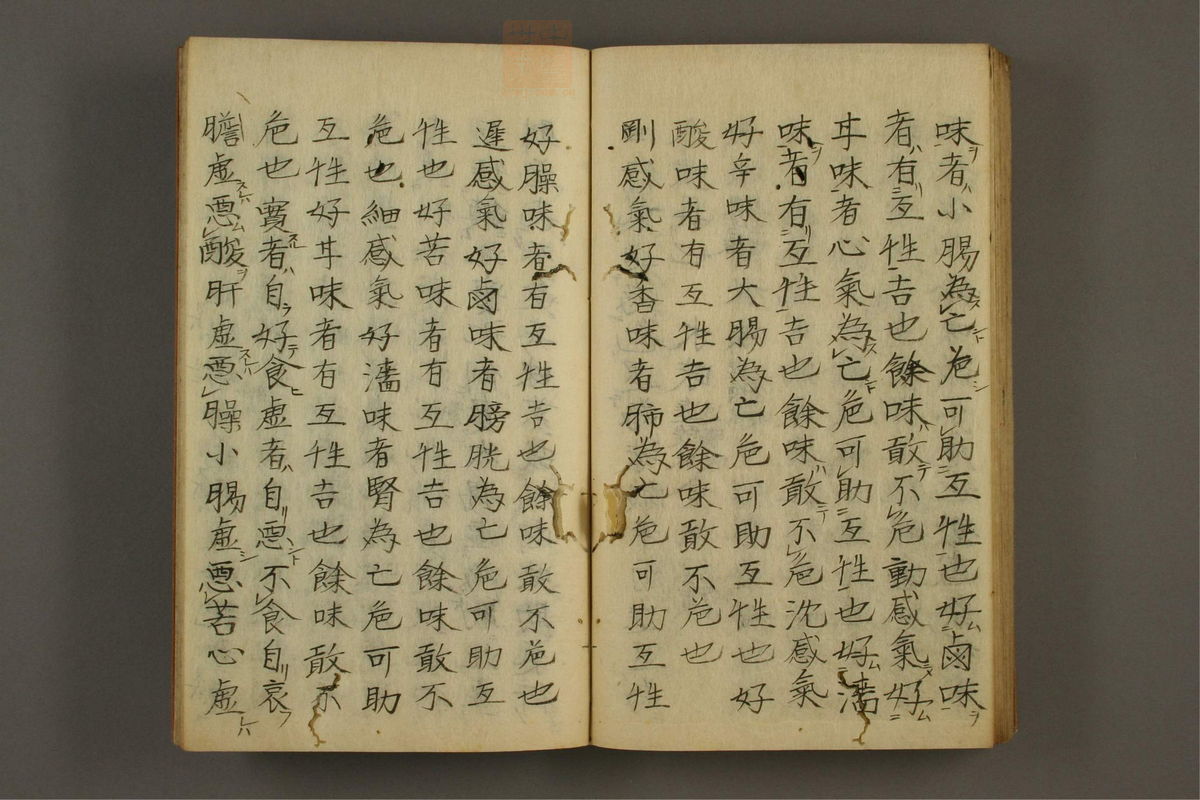 味者小腸為亡危可助互性也好鹵味
者有互性吉也餘味敢不危動感氣好
甘味者心氣為亡危可助互性也好㵧
味者有互性吉也餘味敢不危沈感氣
好辛味者大腸為亡危可助互性也好
酸味者有互性吉也餘味敢不危也
剛感氣好香味者肺為亡危可助互性
好臊味者有互性吉也餘味敢不危也
遲感氣好鹵味者膀胱為亡危可助互
性也好苦味者有互性吉也餘味敢不
危也細感氣好味者腎為亡危可助
互性好甘味者有互性吉也餘味敢不
危也實者自好食虛者自悪不食自哀
膽虛悪酸肝虛悪臊小腸虛悪苦心虛